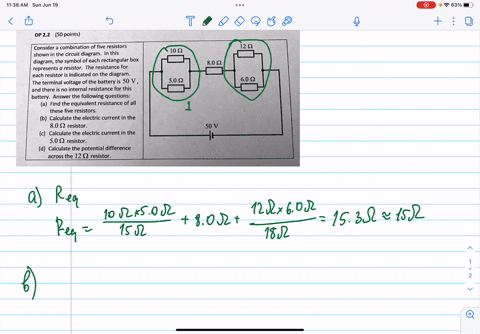 11:38 AM Sun Jun 19
63%
DP 2.2 (50 points)
Consider a combination of five resistors
shown in the circuit diagram. In this
diagram, the symbol of each rectangular box
represents a resistor. The resistance for
each resistor is indicated on the diagram.
The terminal voltage of the battery is 50 V,
and there is no internal resistance for this
battery. Answer the following questions:
(a) Find the equivalent resistance of all
these five resistors.
(b) Calculate the electric current in the
8.0 Ω resistor.
(c) Calculate the electric current in the
5.0 Ω resistor.
(d) Calculate the potential difference
across the 12 Ω resistor.
10 Ω
5.0 Ω
8.0 Ω
12 Ω
6.0 Ω
50 V
1
a) Req
Req = 10Ω×5.0Ω / 15Ω + 8.0Ω + 12Ω×6.0Ω / 18Ω = 15.3Ω ≈ 15Ω
b)
1
2